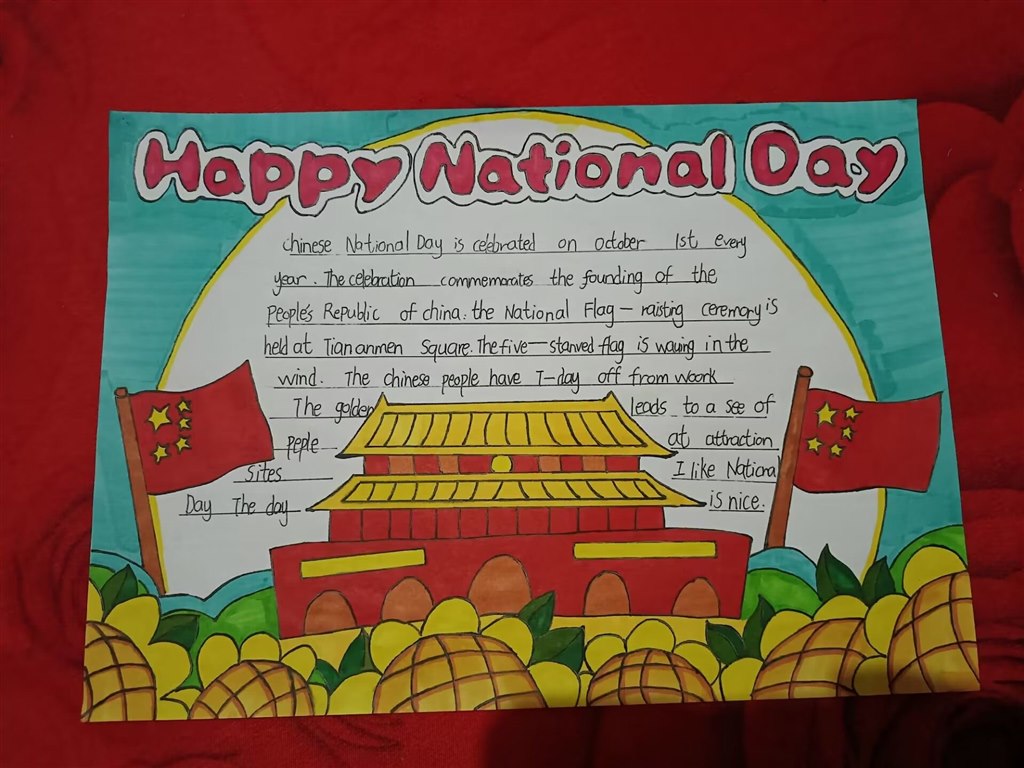 Happy National Day
Chinese National Day is celebrated on October 1st every
year. The celebration commemorates the founding of the
People's Republic of china. the National Flag — raisting ceremony is
held at Tiananmen Square. The five — starved flag is waving in the
wind. The chinese people have 7-day off from woork
The golden leads to a see of
peple at attraction
sites I like National
Day The day is nice.